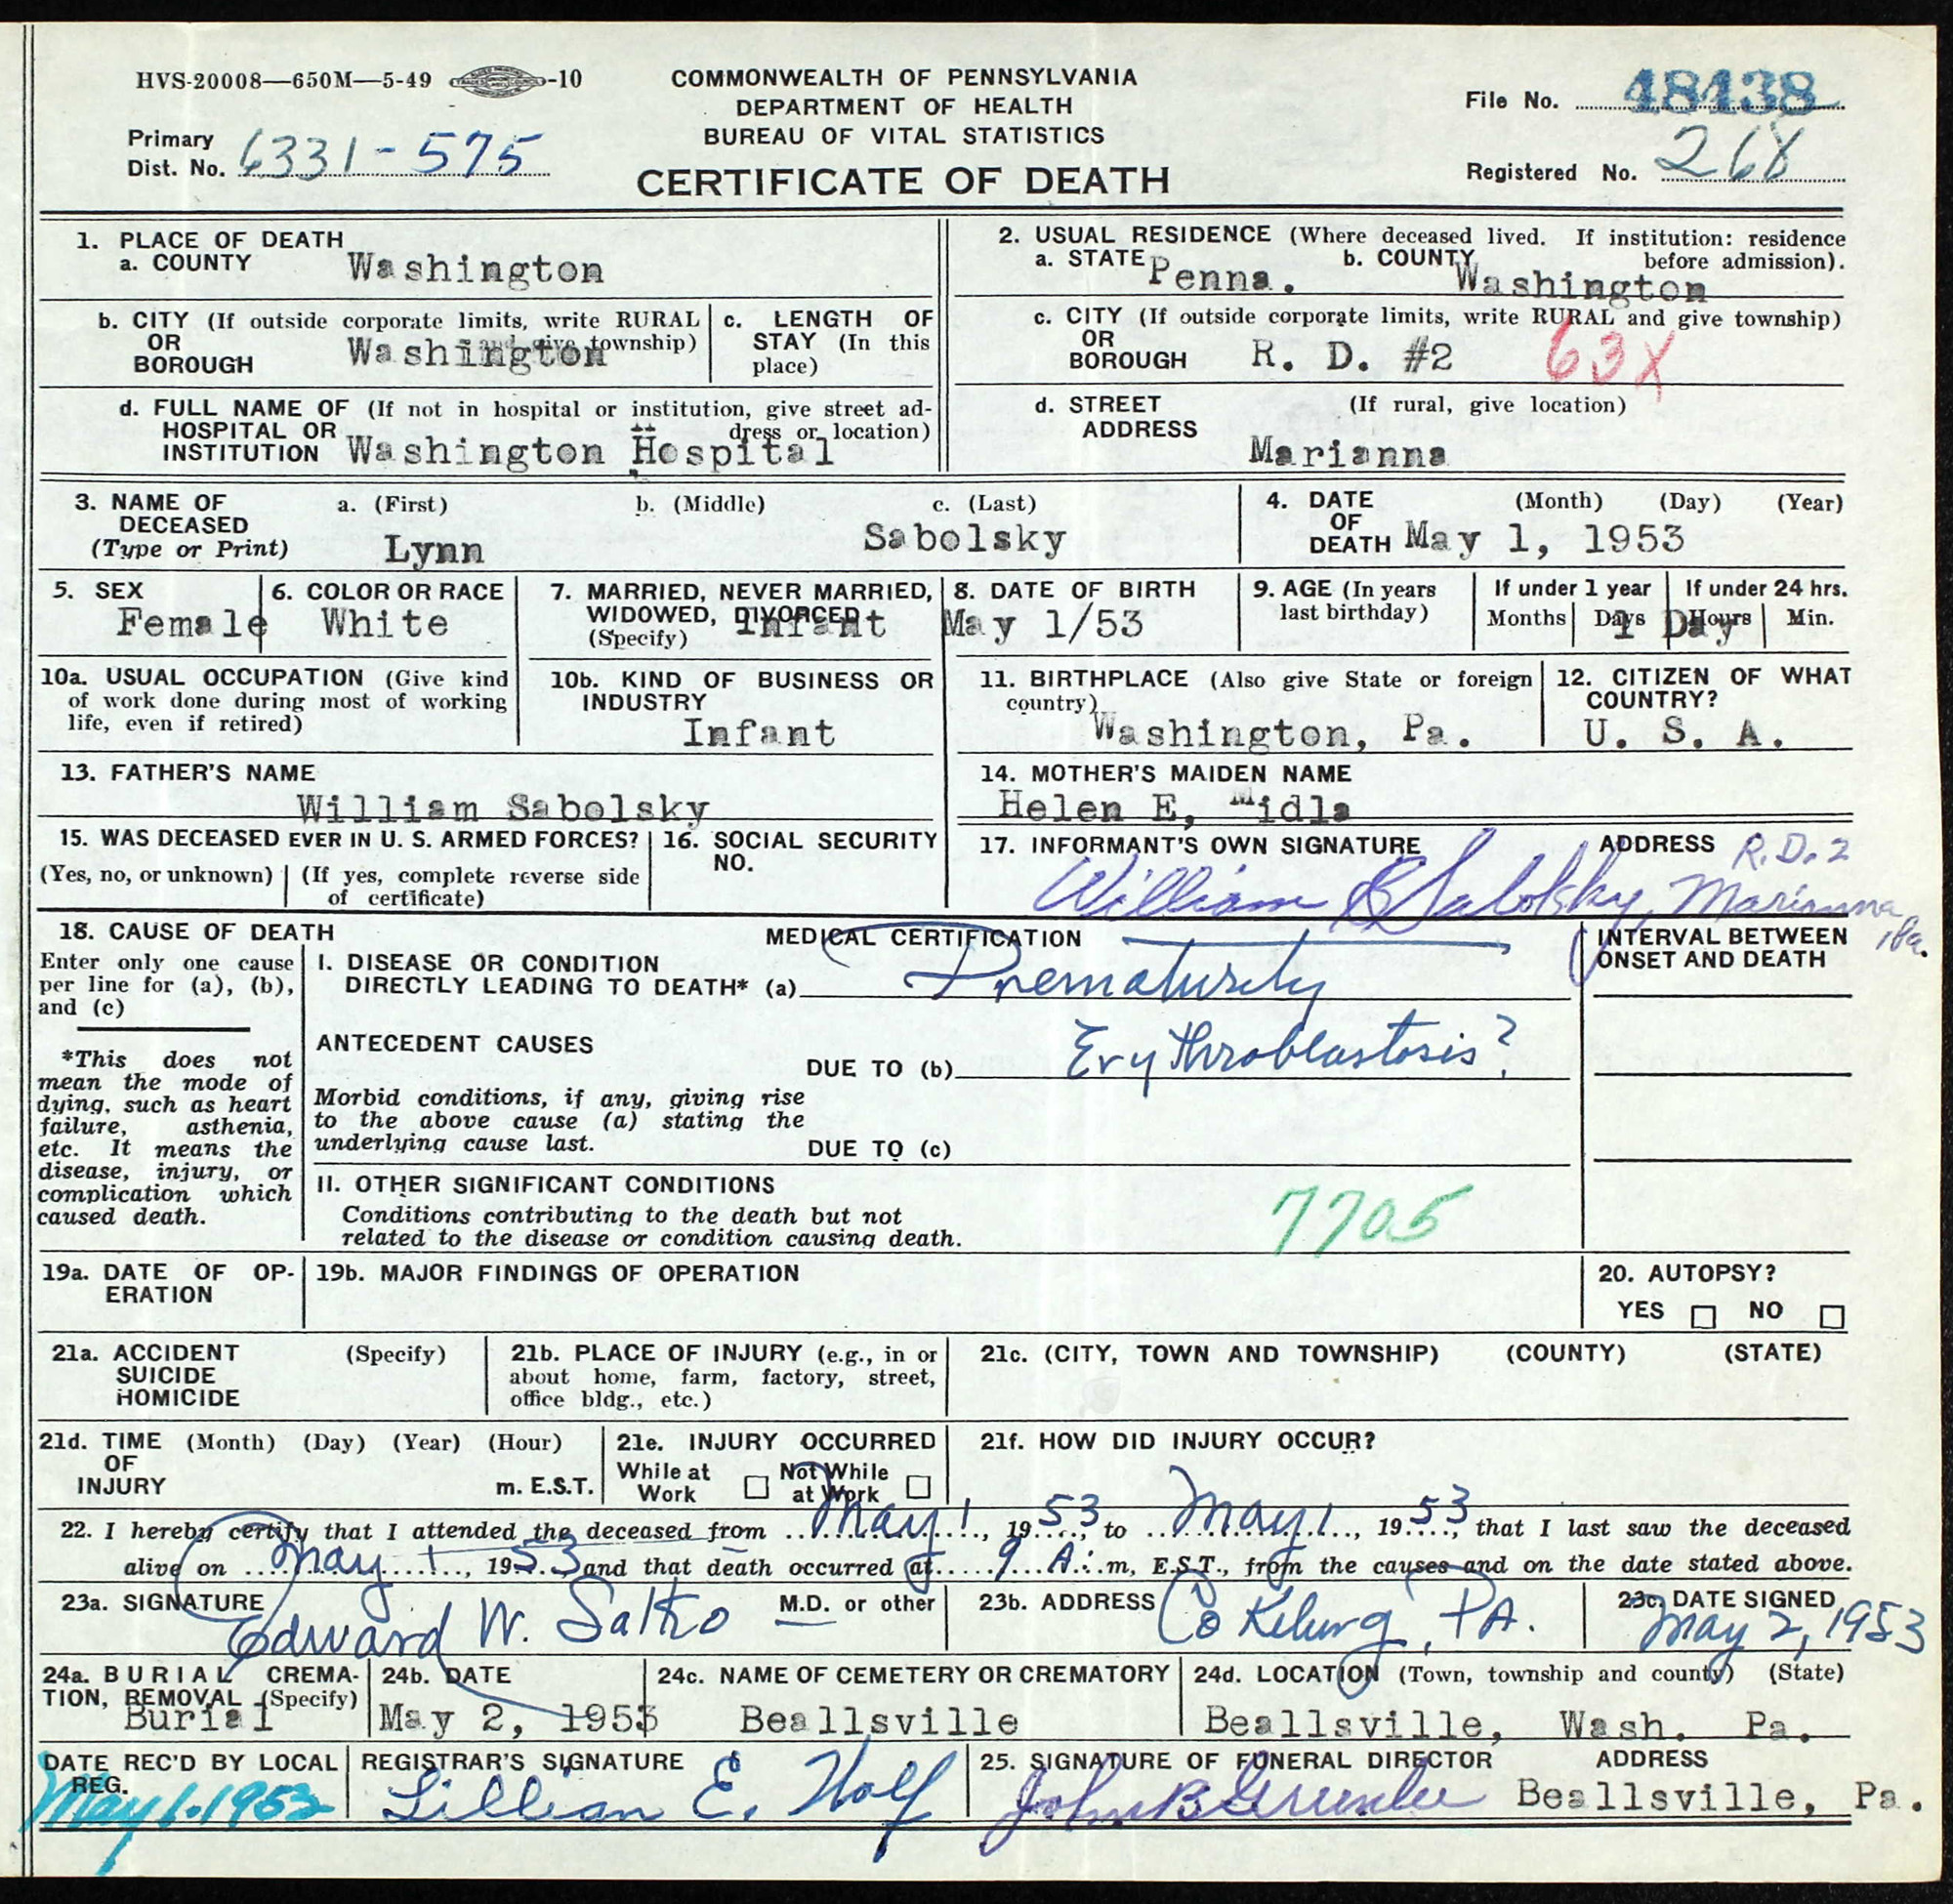 HVS-20008—650M—5-49 -10
COMMONWEALTH OF PENNSYLVANIA
DEPARTMENT OF HEALTH
BUREAU OF VITAL STATISTICS
CERTIFICATE OF DEATH
File No. 48438
Primary
Dist. No. 6331-575
Registered No. 268
1. PLACE OF DEATH
a. COUNTY Washington
2. USUAL RESIDENCE (Where deceased lived. If institution: residence
before admission).
a. STATE Penna. b. COUNTY Washington
b. CITY (If outside corporate limits, write RURAL
OR and give township)
BOROUGH Washington
c. LENGTH OF
STAY (In this
place)
c. CITY (If outside corporate limits, write RURAL and give township)
OR
BOROUGH R. D. #2 63X
d. FULL NAME OF (If not in hospital or institution, give street ad-
HOSPITAL OR dress or location)
INSTITUTION Washington Hospital
d. STREET (If rural, give location)
ADDRESS
Marianna
3. NAME OF a. (First) b. (Middle) c. (Last)
DECEASED
(Type or Print) Lynn Sabolsky
4. DATE (Month) (Day) (Year)
OF
DEATH May 1, 1953
5. SEX
Female
6. COLOR OR RACE
White
7. MARRIED, NEVER MARRIED,
WIDOWED, DIVORCED
(Specify) Infant
8. DATE OF BIRTH
May 1/53
9. AGE (In years
last birthday)
If under 1 year
Months Days
If under 24 hrs.
Hours Min.
1 Day
10a. USUAL OCCUPATION (Give kind
of work done during most of working
life, even if retired)
10b. KIND OF BUSINESS OR
INDUSTRY
Infant
11. BIRTHPLACE (Also give State or foreign
country)
Washington, Pa.
12. CITIZEN OF WHAT
COUNTRY?
U. S. A.
13. FATHER'S NAME
William Sabolsky
14. MOTHER'S MAIDEN NAME
Helen E, Midla
15. WAS DECEASED EVER IN U. S. ARMED FORCES?
(Yes, no, or unknown) (If yes, complete reverse side
of certificate)
16. SOCIAL SECURITY
NO.
17. INFORMANT'S OWN SIGNATURE ADDRESS R.D.2
William B Sabolsky, Marianna
Pa.
18. CAUSE OF DEATH
Enter only one cause
per line for (a), (b),
and (c)
*This does not
mean the mode of
dying, such as heart
failure, asthenia,
etc. It means the
disease, injury, or
complication which
caused death.
MEDICAL CERTIFICATION
I. DISEASE OR CONDITION
DIRECTLY LEADING TO DEATH* (a) Prematurity
ANTECEDENT CAUSES
DUE TO (b) Erythroblastosis?
Morbid conditions, if any, giving rise
to the above cause (a) stating the
underlying cause last.
DUE TO (c)
II. OTHER SIGNIFICANT CONDITIONS
Conditions contributing to the death but not
related to the disease or condition causing death.
7705
INTERVAL BETWEEN
ONSET AND DEATH
19a. DATE OF OP-
ERATION
19b. MAJOR FINDINGS OF OPERATION
20. AUTOPSY?
YES NO
21a. ACCIDENT (Specify)
SUICIDE
HOMICIDE
21b. PLACE OF INJURY (e.g., in or
about home, farm, factory, street,
office bldg., etc.)
21c. (CITY, TOWN AND TOWNSHIP) (COUNTY) (STATE)
21d. TIME (Month) (Day) (Year) (Hour)
OF
INJURY m. E.S.T.
21e. INJURY OCCURRED
While at Not While
Work at Work
21f. HOW DID INJURY OCCUR?
22. I hereby certify that I attended the deceased from May 1, 1953, to May 1, 1953, that I last saw the deceased
alive on May 1, 1953 and that death occurred at 9 A.m, E.S.T., from the causes and on the date stated above.
23a. SIGNATURE M.D. or other
Edward W. Salko
23b. ADDRESS Cokeburg, PA.
23c. DATE SIGNED
May 2, 1953
24a. BURIAL CREMA-
TION, REMOVAL (Specify)
Burial
24b. DATE
May 2, 1953
24c. NAME OF CEMETERY OR CREMATORY
Beallsville
24d. LOCATION (Town, township and county) (State)
Beallsville, Wash. Pa.
DATE REC'D BY LOCAL
REG.
May 1.1953
REGISTRAR'S SIGNATURE
Lillian E. Wolf
25. SIGNATURE OF FUNERAL DIRECTOR ADDRESS
John B Greenlee Beallsville, Pa.